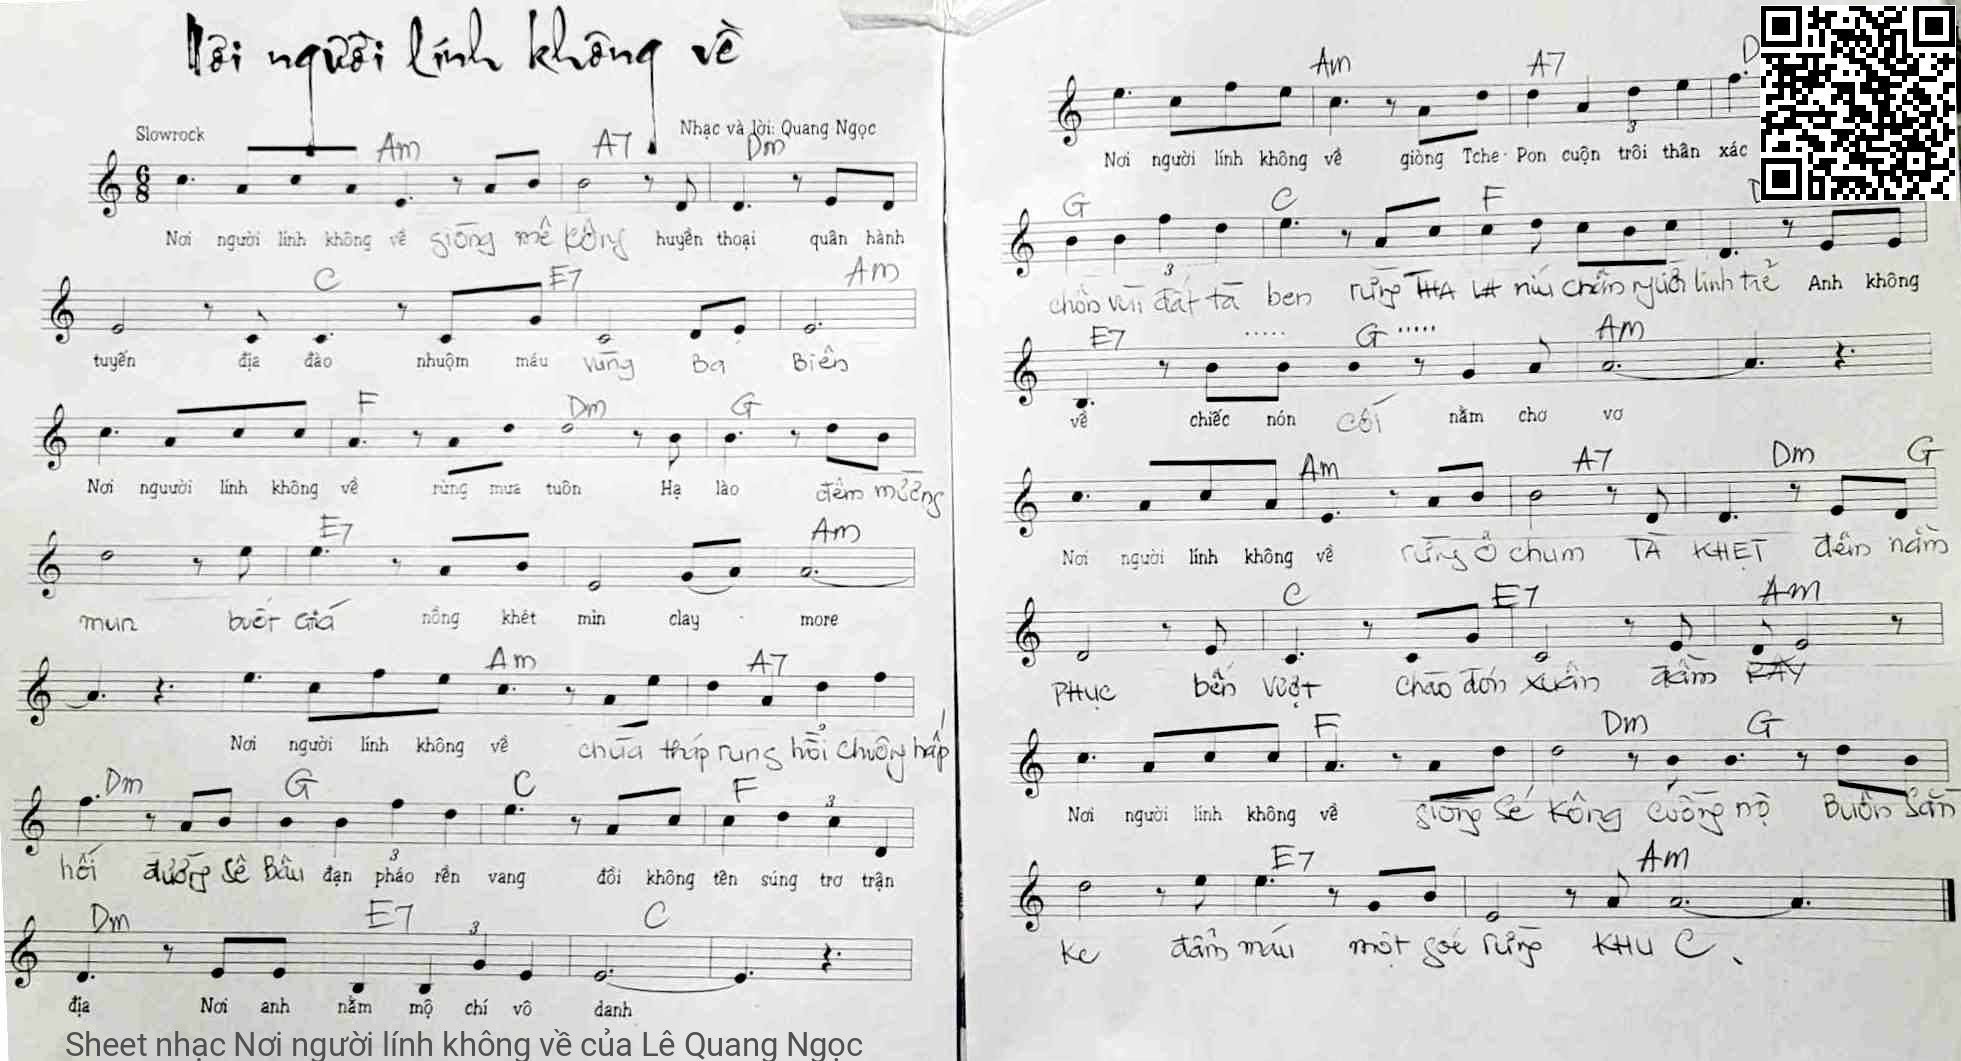 Nơi người lính không về
Slowrock
Nhạc và lời: Quang Ngọc
Am A7 Dm
6 8
Nơi người lính không về giòng mê Kông huyền thoại quân hành
C E7 Am
tuyến địa đào nhuộm máu vùng Ba Biên
F Dm G
Nơi nguười lính không về rừng mưa tuôn Hạ lào đêm mường
E7 Am
mun buốt Giá nồng khét mìn clay - more
Am A7
Nơi người lính không về chùa tháp rung hồi chuông hấp
Dm G C F
3 3
hối đường Sê Bâu đạn pháo rền vang đồi không tên súng trơ trận
Dm E7 C
3
địa Nơi anh nằm mộ chí vô danh
Sheet nhạc Nơi người lính không về của Lê Quang Ngọc
Am A7 D
3
Nơi người lính không về giòng Tche-Pon cuộn trôi thân xác
G C F
3
chôn vùi đất tà ben rừng níu chân người lính trẻ Anh không
E7 ..... G ..... Am
về chiếc nón cối nằm chơ vơ
Am A7 Dm G
Nơi người lính không về rừng Ô chum TÀ KHẸT đêm nằm
C E7 Am
PHỤC bến vượt chào đón xuân đẫm
F Dm G
Nơi người lính không về giòng Sé Kông cuồng nộ Buôn Săn
E7 Am
Ke đẫm máu một góc rừng KHU C.